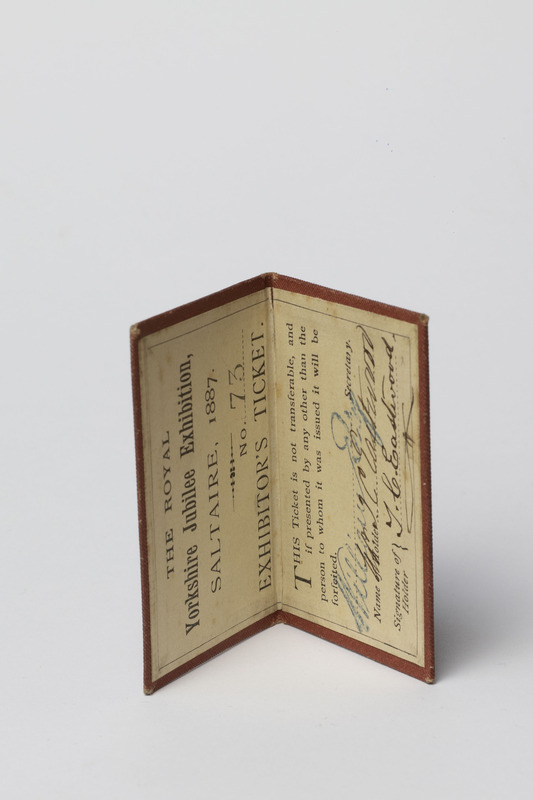 THE ROYAL
Yorkshire Jubilee Exhibition,
SALTAIRE, 1887.
No. 73
EXHIBITOR'S TICKET.
THIS Ticket is not transferable, and
if presented by any other than the
person to whom it was issued it will be
forfeited.
Secretary.
Name of Holder
Signature of Holder } T. C. Eastwood